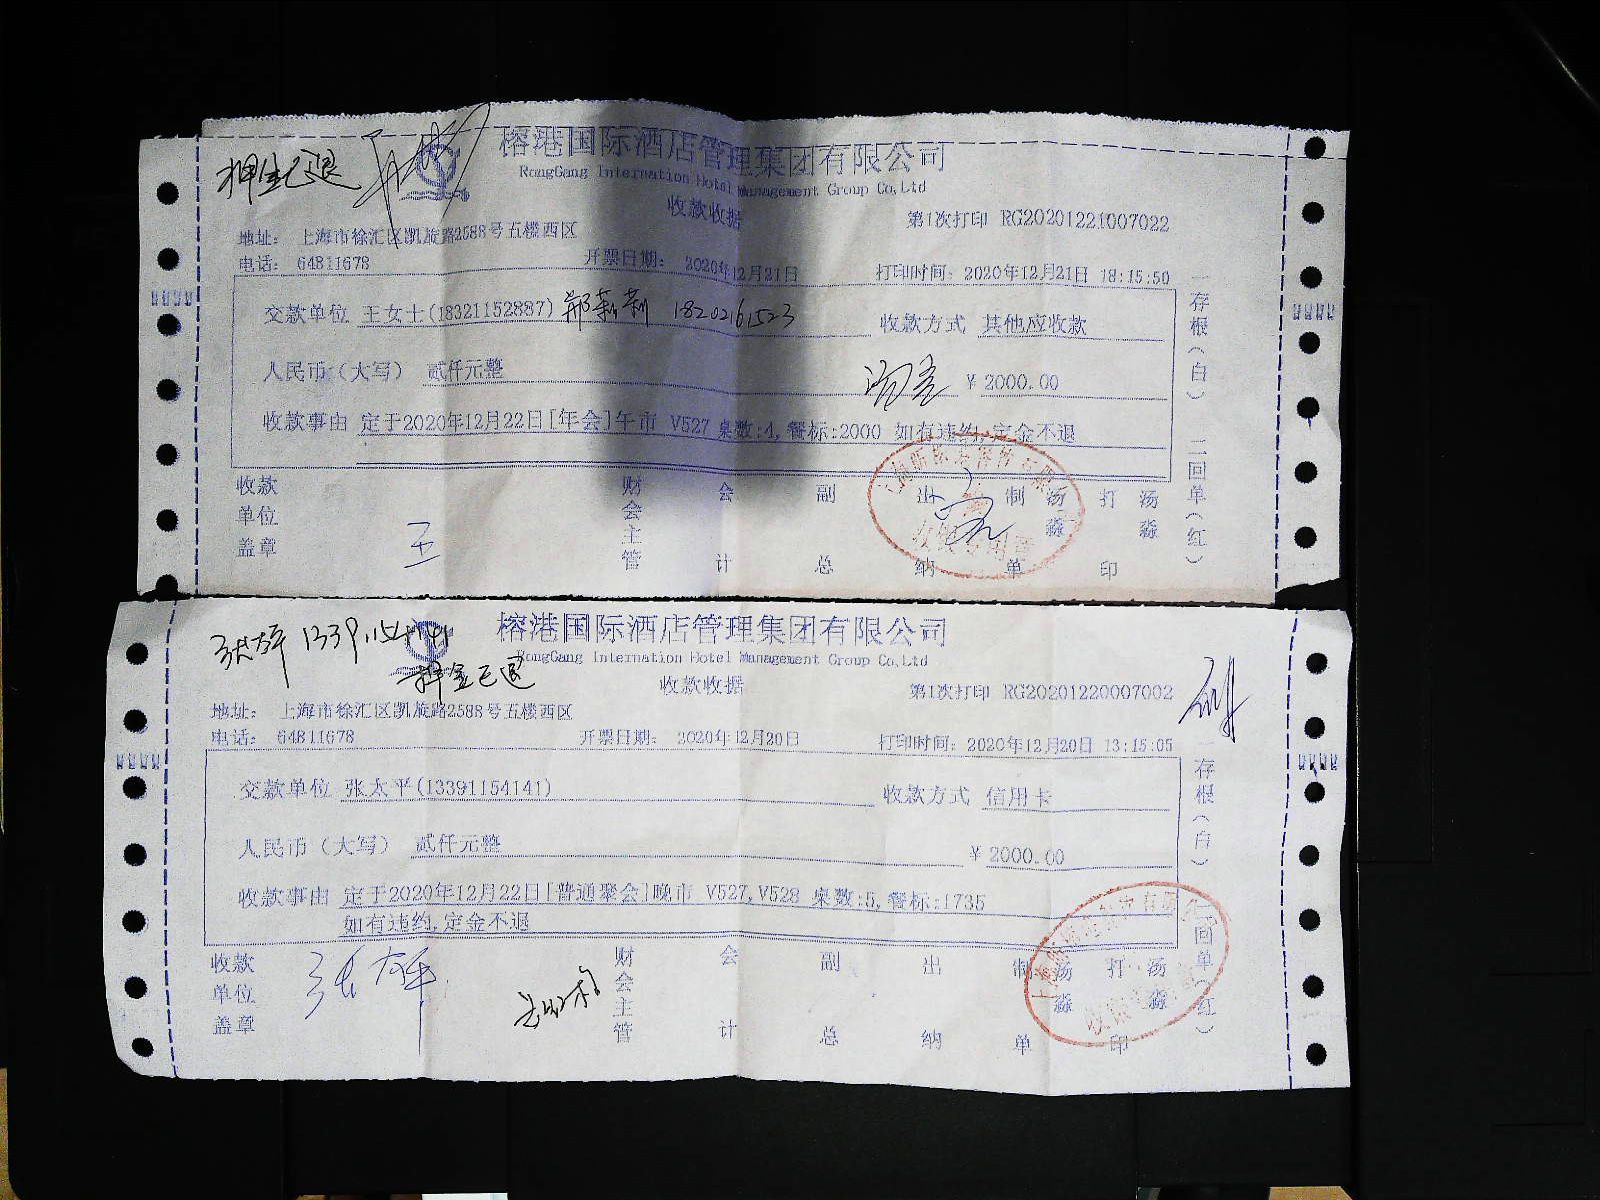 押金已退
榕港国际酒店管理集团有限公司
RongGang Internation Hotel Management Group Co,Ltd
收款收据
第1次打印 RG20201221007022
地址： 上海市徐汇区凯旋路2588号五楼西区
电话： 64811678
开票日期： 2020年12月21日
打印时间：2020年12月21日 18:15:50
交款单位 王女士(18321152887) 郑莉莉 18202161523
收款方式 其他应收款
人民币（大写） 贰仟元整
￥2000.00
收款事由 定于2020年12月22日[年会]午市 V527 桌数:4,餐标:2000 如有违约,定金不退
收款单位盖章
王
财会主管
会计
副总
出纳
制单
汤淼
打印
汤淼
一存根（白） 二回单（红）
张太平 13391154141
押金已退
榕港国际酒店管理集团有限公司
RongGang Internation Hotel Management Group Co,Ltd
收款收据
第1次打印 RG20201220007002
地址： 上海市徐汇区凯旋路2588号五楼西区
电话： 64811678
开票日期： 2020年12月20日
打印时间：2020年12月20日 13:15:05
交款单位 张太平(13391154141)
收款方式 信用卡
人民币（大写） 贰仟元整
￥2000.00
收款事由 定于2020年12月22日[普通聚会]晚市 V527,V528 桌数:5,餐标:1735
如有违约,定金不退
收款单位盖章
张太平
财会主管
会计
副总
出纳
制单
汤淼
打印
汤淼
一存根（白） 二回单（红）